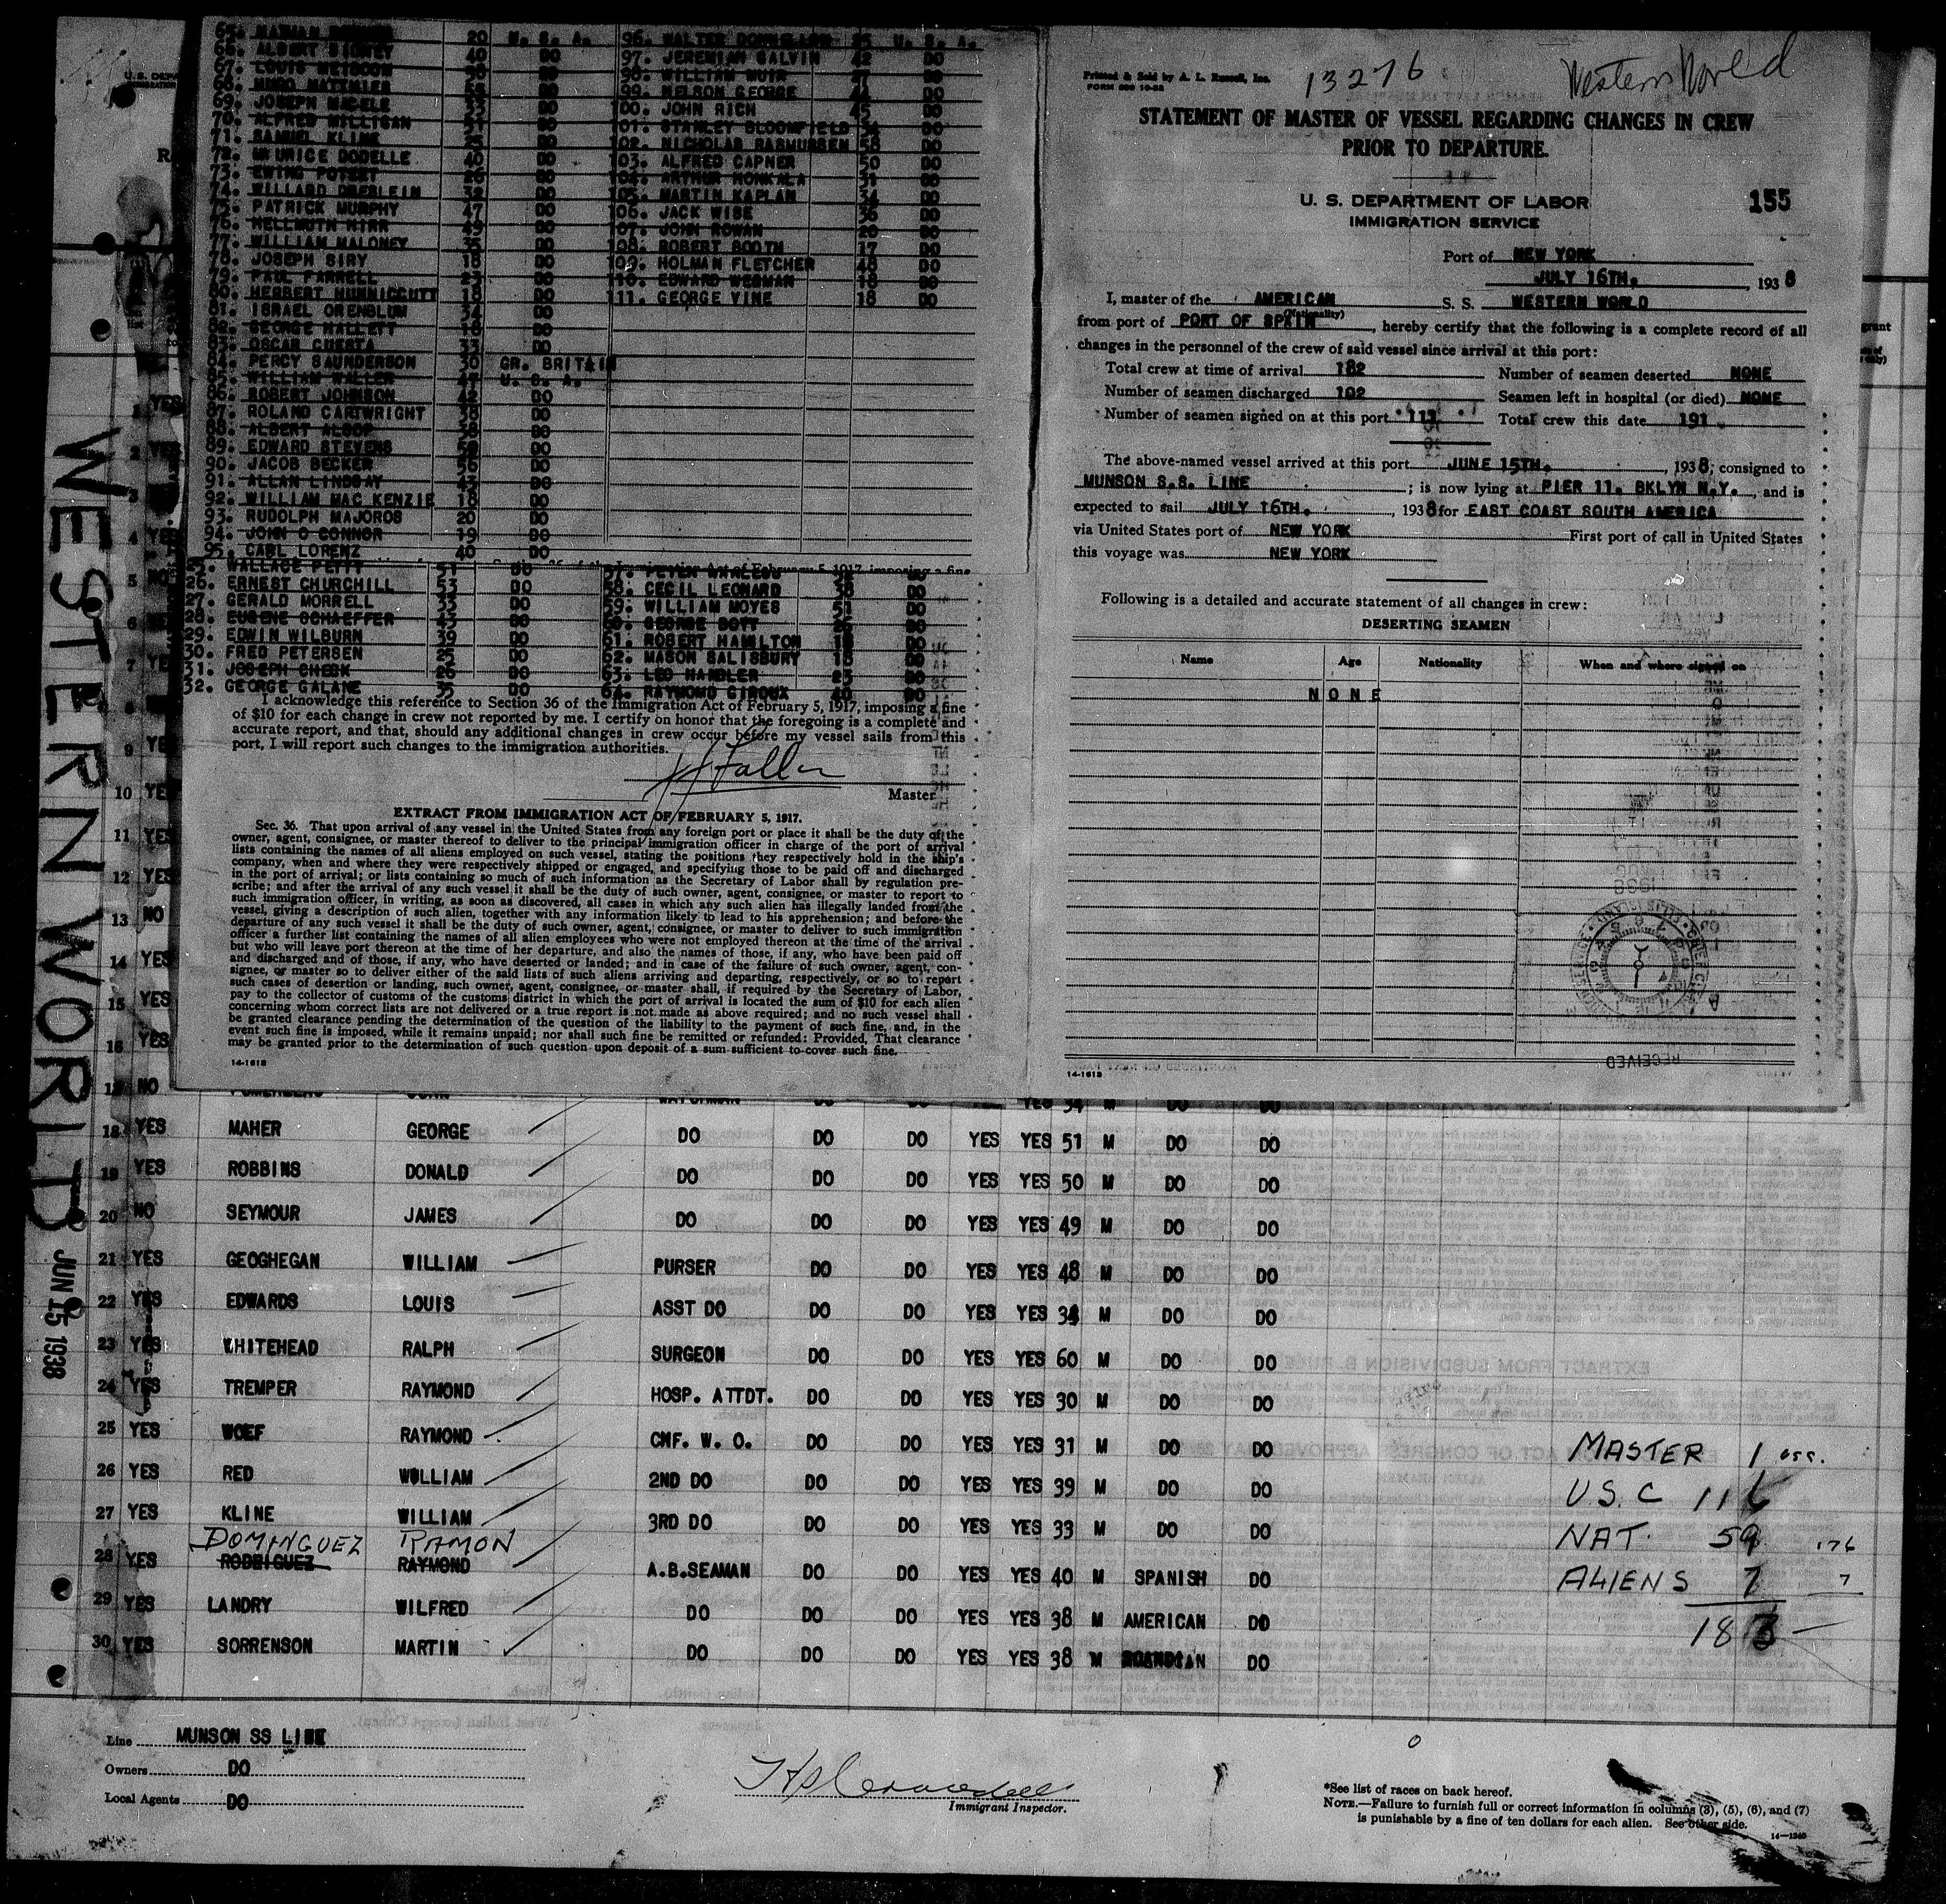 96. WALTER 25 U. S. A.
65. 20 U. S. A.
66. ALBERT SIDNEY 40 DO
97. JEREMIAH GALVIN 42 DO
67. LOUIS DO
98. WILLIAM MUIR 27 DO
68. HUGO DO
99. NELSON GEORGE 44 DO
69. JOSEPH DO
100. JOHN RICH 45 DO
70. ALFRED MILLIGAN 51 DO
101. STANLEY BLOOMFIELD 34 DO
71. SAMUEL KLINE DO
102. NICHOLAS RASMUSSEN 58 DO
72. MAURICE DODELLE 40 DO
103. ALFRED CAPNER 50 DO
73. EWING POTEET 26 DO
104. ARTHUR HONKALA 31 DO
74. WILLARD 32 DO
105. MARTIN KAPLAN 34 DO
75. PATRICK MURPHY 47 DO
106. JACK WISE 36 DO
76. HELLMUTH 49 DO
107. JOHN ROWAN 20 DO
77. WILLIAM MALONEY 35 DO
108. ROBERT BOOTH 17 DO
78. JOSEPH SIRY 18 DO
109. HOLMAN FLETCHER 48 DO
79. PAUL FARRELL 23 DO
110. EDWARD WEGMAN 18 DO
80. HERBERT HUNNICUTT 18 DO
111. GEORGE VINE 18 DO
81. ISRAEL ORENBLUM 34 DO
82. GEORGE HALLETT 18 DO
83. OSCAR CUESTA 33 DO
84. PERCY SAUNDERSON 30 GR. BRITAIN
85. WILLIAM WALLEN 47 U. S. A.
86. ROBERT JOHNSON 42 DO
87. ROLAND CARTWRIGHT 38 DO
88. ALBERT ALSOP 38 DO
89. EDWARD STEVENS DO
90. JACOB BECKER 56 DO
91. ALLAN LINDSAY 43 DO
92. WILLIAM MAC KENZIE 18 DO
93. RUDOLPH MAJOROS 20 DO
94. JOHN O CONNOR 19 DO
95. CARL LORENZ 40 DO
25. WALLACE PETIT 51 DO
26. ERNEST CHURCHILL 53 DO
58. CECIL LEONARD 38 DO
27. GERALD MORRELL 33 DO
59. WILLIAM MOYES 51 DO
28. EUGENE SCHAEFFER 43 DO
60. GEORGE DOTT DO
29. EDWIN WILBURN 39 DO
61. ROBERT HAMILTON 18 DO
30. FRED PETERSEN 25 DO
62. MASON SALISBURY 18 DO
31. JOSEPH CHECK 26 DO
63. LEO HANDLER 23 DO
32. GEORGE GALANE 35 DO
64. RAYMOND GIROUX 40 DO
I acknowledge this reference to Section 36 of the Immigration Act of February 5, 1917, imposing a fine
of $10 for each change in crew not reported by me. I certify on honor that the foregoing is a complete and
accurate report, and that, should any additional changes in crew occur before my vessel sails from this
port, I will report such changes to the immigration authorities.
Master
EXTRACT FROM IMMIGRATION ACT OF FEBRUARY 5, 1917.
Sec. 36. That upon arrival of any vessel in the United States from any foreign port or place it shall be the duty of the
owner, agent, consignee, or master thereof to deliver to the principal immigration officer in charge of the port of arrival
lists containing the names of all aliens employed on such vessel, stating the positions they respectively hold in the ship's
company, when and where they were respectively shipped or engaged, and specifying those to be paid off and discharged
in the port of arrival; or lists containing so much of such information as the Secretary of Labor shall by regulation pre-
scribe; and after the arrival of any such vessel it shall be the duty of such owner, agent, consignee, or master to report to
such immigration officer, in writing, as soon as discovered, all cases in which any such alien has illegally landed from the
vessel, giving a description of such alien, together with any information likely to lead to his apprehension; and before the
departure of any such vessel it shall be the duty of such owner, agent, consignee, or master to deliver to such immigration
officer a further list containing the names of all alien employees who were not employed thereon at the time of the arrival
but who will leave port thereon at the time of her departure, and also the names of those, if any, who have been paid off
and discharged and of those, if any, who have deserted or landed; and in case of the failure of such owner, agent, con-
signee, or master so to deliver either of the said lists of such aliens arriving and departing, respectively, or so to report
such cases of desertion or landing, such owner, agent, consignee, or master shall, if required by the Secretary of Labor,
pay to the collector of customs of the customs district in which the port of arrival is located the sum of $10 for each alien
concerning whom correct lists are not delivered or a true report is not made as above required; and no such vessel shall
be granted clearance pending the determination of the question of the liability to the payment of such fine, and, in the
event such fine is imposed, while it remains unpaid; nor shall such fine be remitted or refunded: Provided, That clearance
may be granted prior to the determination of such question upon deposit of a sum sufficient to cover such fine.
14-1613
Printed & Sold by A. L. Russell, Inc.
13276
Western World
STATEMENT OF MASTER OF VESSEL REGARDING CHANGES IN CREW
PRIOR TO DEPARTURE.
U. S. DEPARTMENT OF LABOR
155
IMMIGRATION SERVICE
Port of NEW YORK
JULY 16TH. , 1938
I, master of the AMERICAN S. S. WESTERN WORLD
(Nationality)
from port of PORT OF SPAIN , hereby certify that the following is a complete record of all
changes in the personnel of the crew of said vessel since arrival at this port:
Total crew at time of arrival 182 Number of seamen deserted NONE
Number of seamen discharged 102 Seamen left in hospital (or died) NONE
Number of seamen signed on at this port 111 Total crew this date 191
The above-named vessel arrived at this port JUNE 15TH. , 1938; consigned to
MUNSON S.S. LINE ; is now lying at PIER 11. BKLYN N.Y. , and is
expected to sail JULY 16TH. , 1938 for EAST COAST SOUTH AMERICA
via United States port of NEW YORK First port of call in United States
this voyage was NEW YORK
Following is a detailed and accurate statement of all changes in crew:
DESERTING SEAMEN
Name Age Nationality When and where signed on
NONE
RECEIVED
14-1613
WESTERN WORLD
JUN 15 1938
18 YES MAHER GEORGE DO DO DO YES YES 51 M DO DO
19 YES ROBBINS DONALD DO DO DO YES YES 50 M DO DO
20 NO SEYMOUR JAMES DO DO DO YES YES 49 M DO DO
21 YES GEOGHEGAN WILLIAM PURSER DO DO YES YES 48 M DO DO
22 YES EDWARDS LOUIS ASST DO DO DO YES YES 34 M DO DO
23 YES WHITEHEAD RALPH SURGEON DO DO YES YES 60 M DO DO
24 YES TREMPER RAYMOND HOSP. ATTDT. DO DO YES YES 30 M DO DO
25 YES WOEF RAYMOND CHF. W. O. DO DO YES YES 31 M DO DO
26 YES RED WILLIAM 2ND DO DO DO YES YES 39 M DO DO
27 YES KLINE WILLIAM 3RD DO DO DO YES YES 33 M DO DO
DOMINGUEZ RAMON
28 YES RODRIGUEZ RAYMOND A.B.SEAMAN DO DO YES YES 40 M SPANISH DO
29 YES LANDRY WILFRED DO DO DO YES YES 38 M AMERICAN DO
30 YES SORRENSON MARTIN DO DO DO YES YES 38 M DO
MASTER 1
U.S.C 116
NAT. 59 176
ALIENS 7 7
183
Line MUNSON SS LINE
Owners DO
Local Agents DO
Immigrant Inspector.
*See list of races on back hereof.
NOTE.—Failure to furnish full or correct information in columns (3), (5), (6), and (7)
is punishable by a fine of ten dollars for each alien. See other side.
14—1240